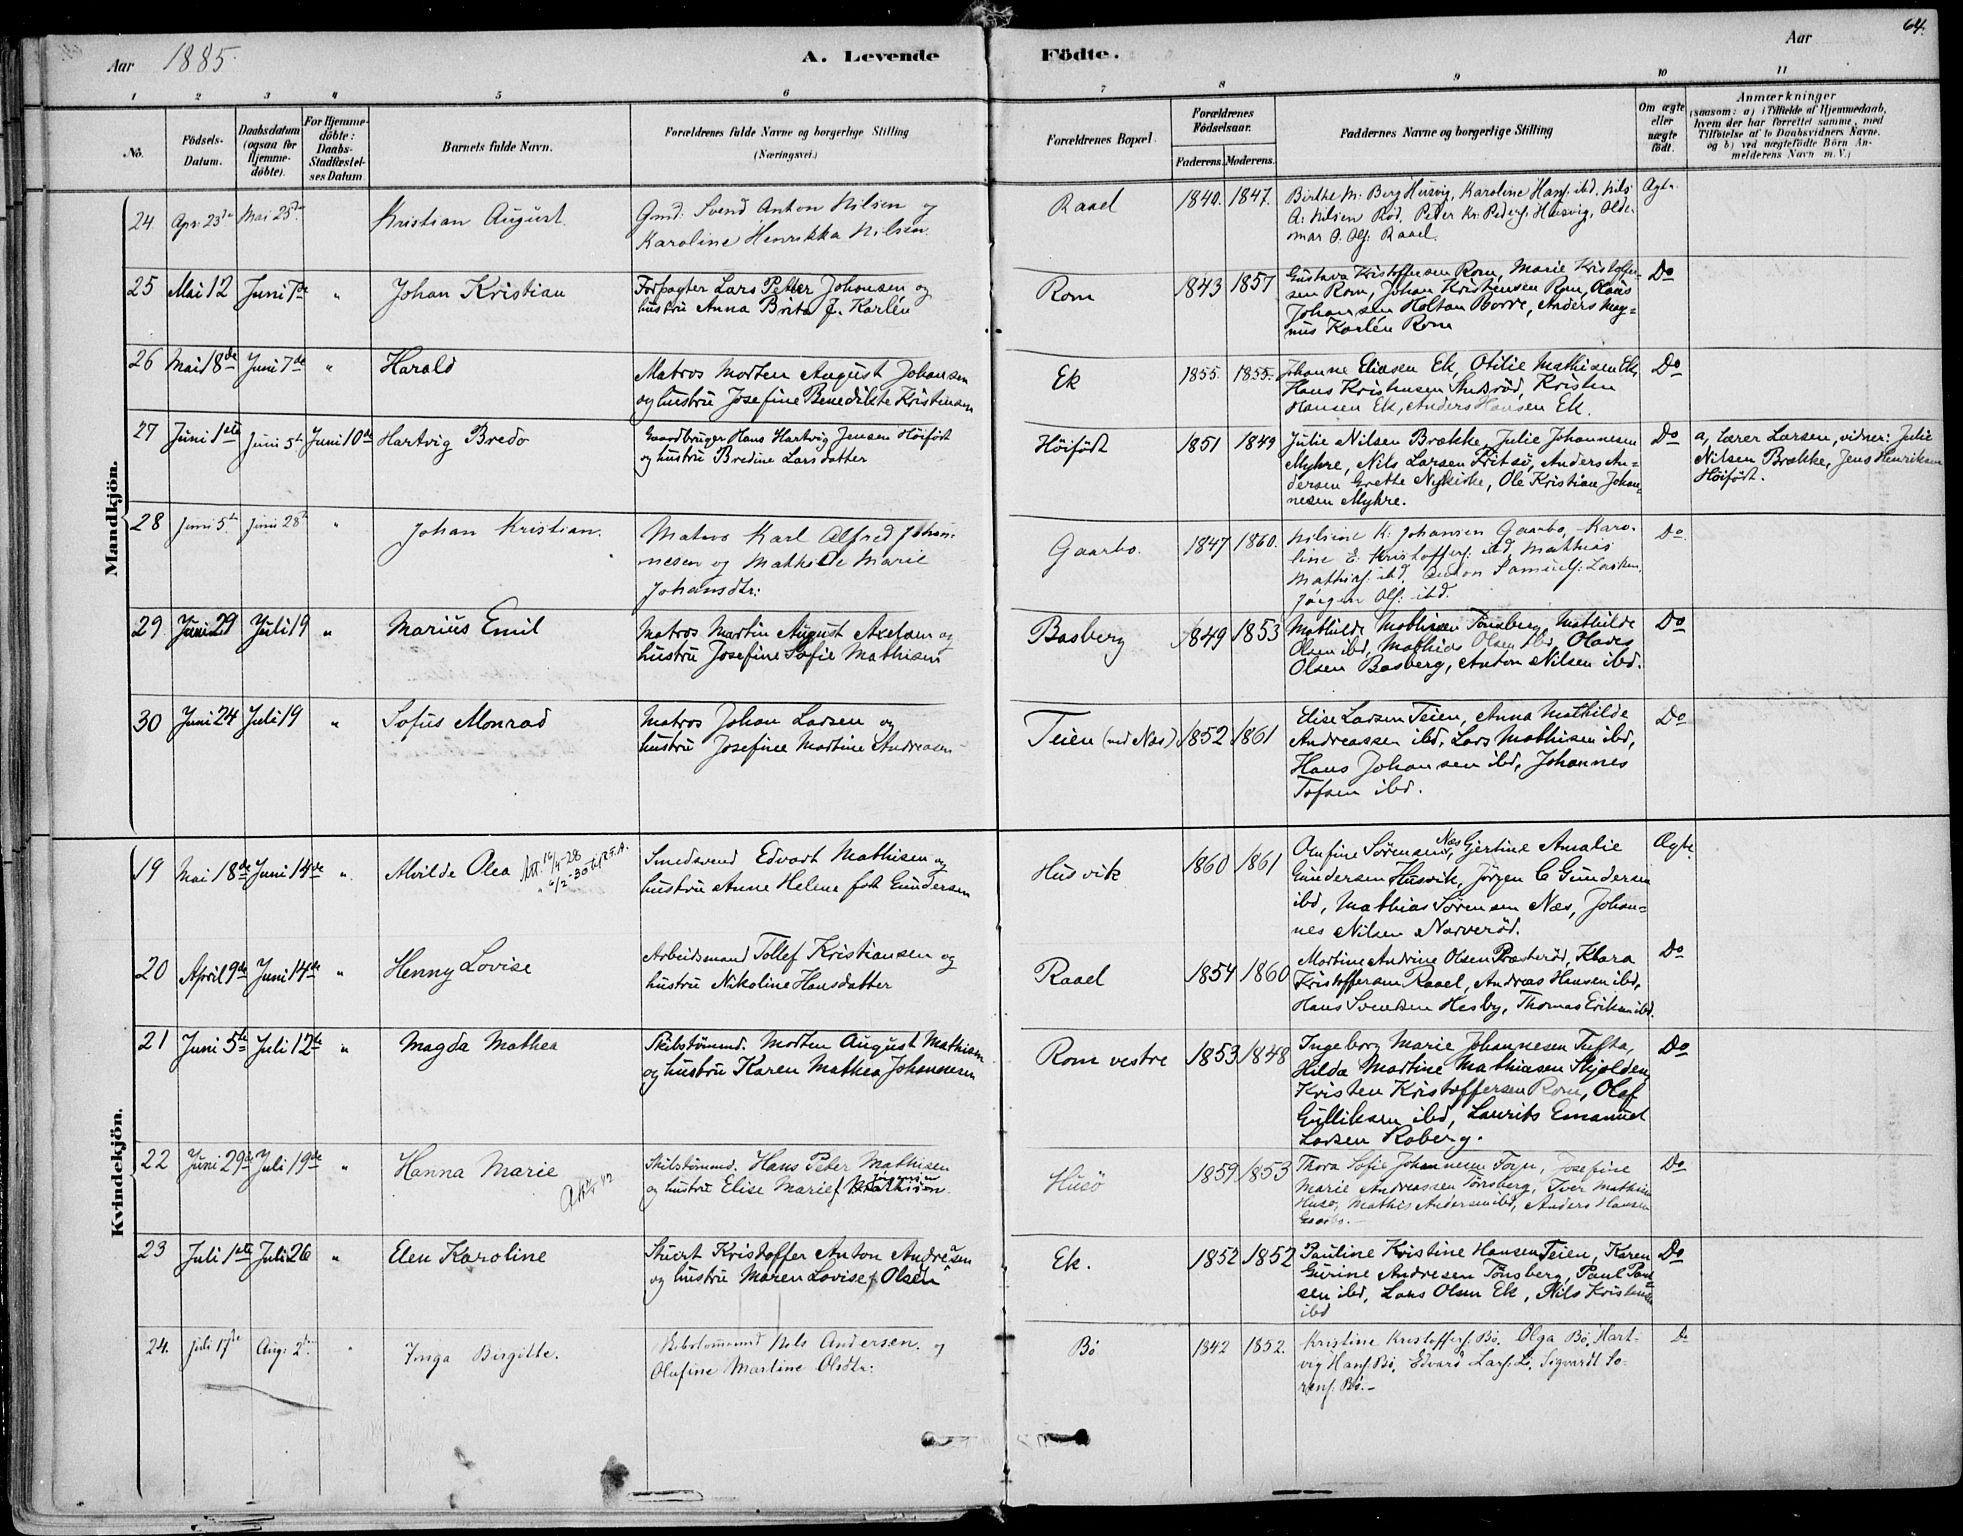 Aar 1885.
A. Levende
Födte.
Aar
64.
1 2 3 4 5 6 7 8 9 10 11
No.
Födsels-
Datum.
Daabsdatum
(ogsaa for
Hjemme-
döbte).
For Hjemme-
döbte:
Daabs-
Stadfæstel-
ses Datum
Barnets fulde Navn.
Forældrenes fulde Navne og borgerlige Stilling
(Næringsvei.)
Forældrenes Bopæl.
Forældrenes
Födselsaar.
Faderens. Moderens.
Faddernes Navne og borgerlige Stilling
Om ægte
eller
uægte
födt.
Anmærkninger
(saasom: a) i Tilfælde af Hjemmedaab,
hvem der har forrettet samme, med
Tilföielse af to Daabsvidners Navne.
og b) ved uægtefödte Börn An-
melderens Navn m. V.)
Mandkjön.
24 Apr: 23de Mai 25de Kristian August.
Gmd: Svend Anton Nilsen og
Karoline Henrikka Nilsen.
Raael 1840. 1847.
Birthe M. Berg Husvig, Karoline Hans. ibd. Nils
A. Nilsen Rød. Peter Kr. Peders. Husvig, Olde-
mar O. Ols. Raael.
Ægte.
25 Mai 12 Juni 7de " Johan Kristian
Forpagter Lars Petter Johansen og
hustru Anna Brita f. Karlén
Rom 1843 1857
Gustava Kristoffersen Rom, Marie Kristoffer-
sen Rom, Johan Kristensen Rom, Klaus
Johansen Holtan Borre, Anders Mag-
nus Karlén Rom
Do
26 Mai 18de Juni 7de " Harald
Matros Morten August Johansen
og hustru Josefine Benedikte Kristensen
Ek 1855. 1855.
Johanne Eliasen Ek, Otilie Mathisen Ek,
Hans Kristensen , Kristen
Hansen Ek, Anders Hansen Ek.
Do
27 Juni 1ste Juni 5te Juni 10de Hartvig Bredo
Gaardbruger Hans Hartvig Jensen Höifödt
og hustru Bredine Larsdatter
Höifödt 1851 1849
Julie Nilsen Brække, Julie Johannesen
Myhre, Nils Larsen Fritsø, Anders An-
dersen Grette Nykirke, Ole Kristian Johan-
nesen Myhre.
Do
a, Lærer Larsen, vidner: Julie
Nilsen Brække, Jens Henriksen
Höifödt.
28 Juni 5te Juni 28de " Johan Kristian.
Matros Karl Alfred Johan-
nesen og Mathilde Marie
Johansdtr:
Gaarbo. 1847 1860.
Nilsine K. Johansen Gaarbo, Karo-
line E. Kristoffers. ibd, Mathias
Mathis. ibd. Anton Samuels.
Jörgen Ols. ibd.
Do.
29. Juni 29 Juli 19 " Marius Emil
Matros Martin August Axelsen og
hustru Josefine Sofie Mathisen
Basberg 1849 1853
Mathilde Mathisen Tönsberg, Mathilde
Olsen ibd, Mathias Olsen ibd, Olaves
Olsen Basberg, Anton Nilsen ibd.
Do
30 Juni 24 Juli 19 " Sofus Monrad
Matros Johan Larsen og
hustru Josefine Martine Andreasen
Teien (ved Næs) 1852 1861
Elise Larsen Teien, Anna Mathilde
Andreassen ibd, Lars Mathisen ibd,
Hans Johansen ibd, Johannes
Tofsen ibd.
Do
Kvindekjön.
19 Mai 18de Juni 14de " Alvilde Olea Att. 16/4-28
" 6/2-30 til R.T.A.
Smedsvend Edvart Mathisen og
hustru Anne Helene født Gundersen
Husvik 1860 1861
Olufine Sørensen Næs, Gjertine Amalie
Gundersen Husvik, Jörgen C Gundersen
ibd, Mathias Sørensen Næs, Johan-
nes Nilsen Narverød.
Ægte.
20 April 9de Juni 14de " Henny Lovise
Arbeidsmand Tollef Kristiansen og
hustru Nikoline Hansdatter
Raael 1854 1860
Martine Andrine Olsen Præsterød, Klara
Kristoffersen Raael, Andreas Hansen ibd,
Hans Svendsen Hesby, Thomas Eriksen ibd.
Do
21 Juni 5te Juli 12te " Magda Mathea
Skibstömmd. Morten August Mathisen
og hustru Karen Mathea Johannesen
Rom vestre 1853 1848
Ingeborg Marie Johannesen Tufta,
Hilda Martine Mathiasen Skjolden,
Kristen Kristoffersen Rom, Olaf
Gulliksen ibd, Laurits Emanuel
Larsen Roberg.
Do
22 Juni 29de Juli 19de " Hanna Marie
Skibstömmd. Hans Peter Mathisen
og hustru Elise Marie f. Mathisen.
Husö 1859 1853
Thora Sofie Johannesen , Josefine
Marie Andreassen Tönsberg, Iver Mathisen
Husö, Mathis Andersen ibd, Anders Hansen
Gaarbo.
Do
23 Juli 1ste Juli 26 " Elen Karoline
Stuert Kristoffer Anton Andresen
og hustru Maren Lovise f. Olsen
Ek. 1852 1852
Pauline Kristine Hansen Teien, Karen
Gurine Andresen Tönsberg, Paul Paul-
sen ibd, Lars Olsen Ek, Nils Kristensen
ibd
Do
24. Juli 17de Aug: 2den " Inga Birgitte.
Skibstömmd Nils Andersen. og
Olufine Martine Olsdtr:
Bö 1842 1852.
Kristine Kristoffers. Bö. Olga Bö, Hart-
vig Hans. Bö. Edvard Lars. , Sigvardt So-
rens. Bö.-
Do